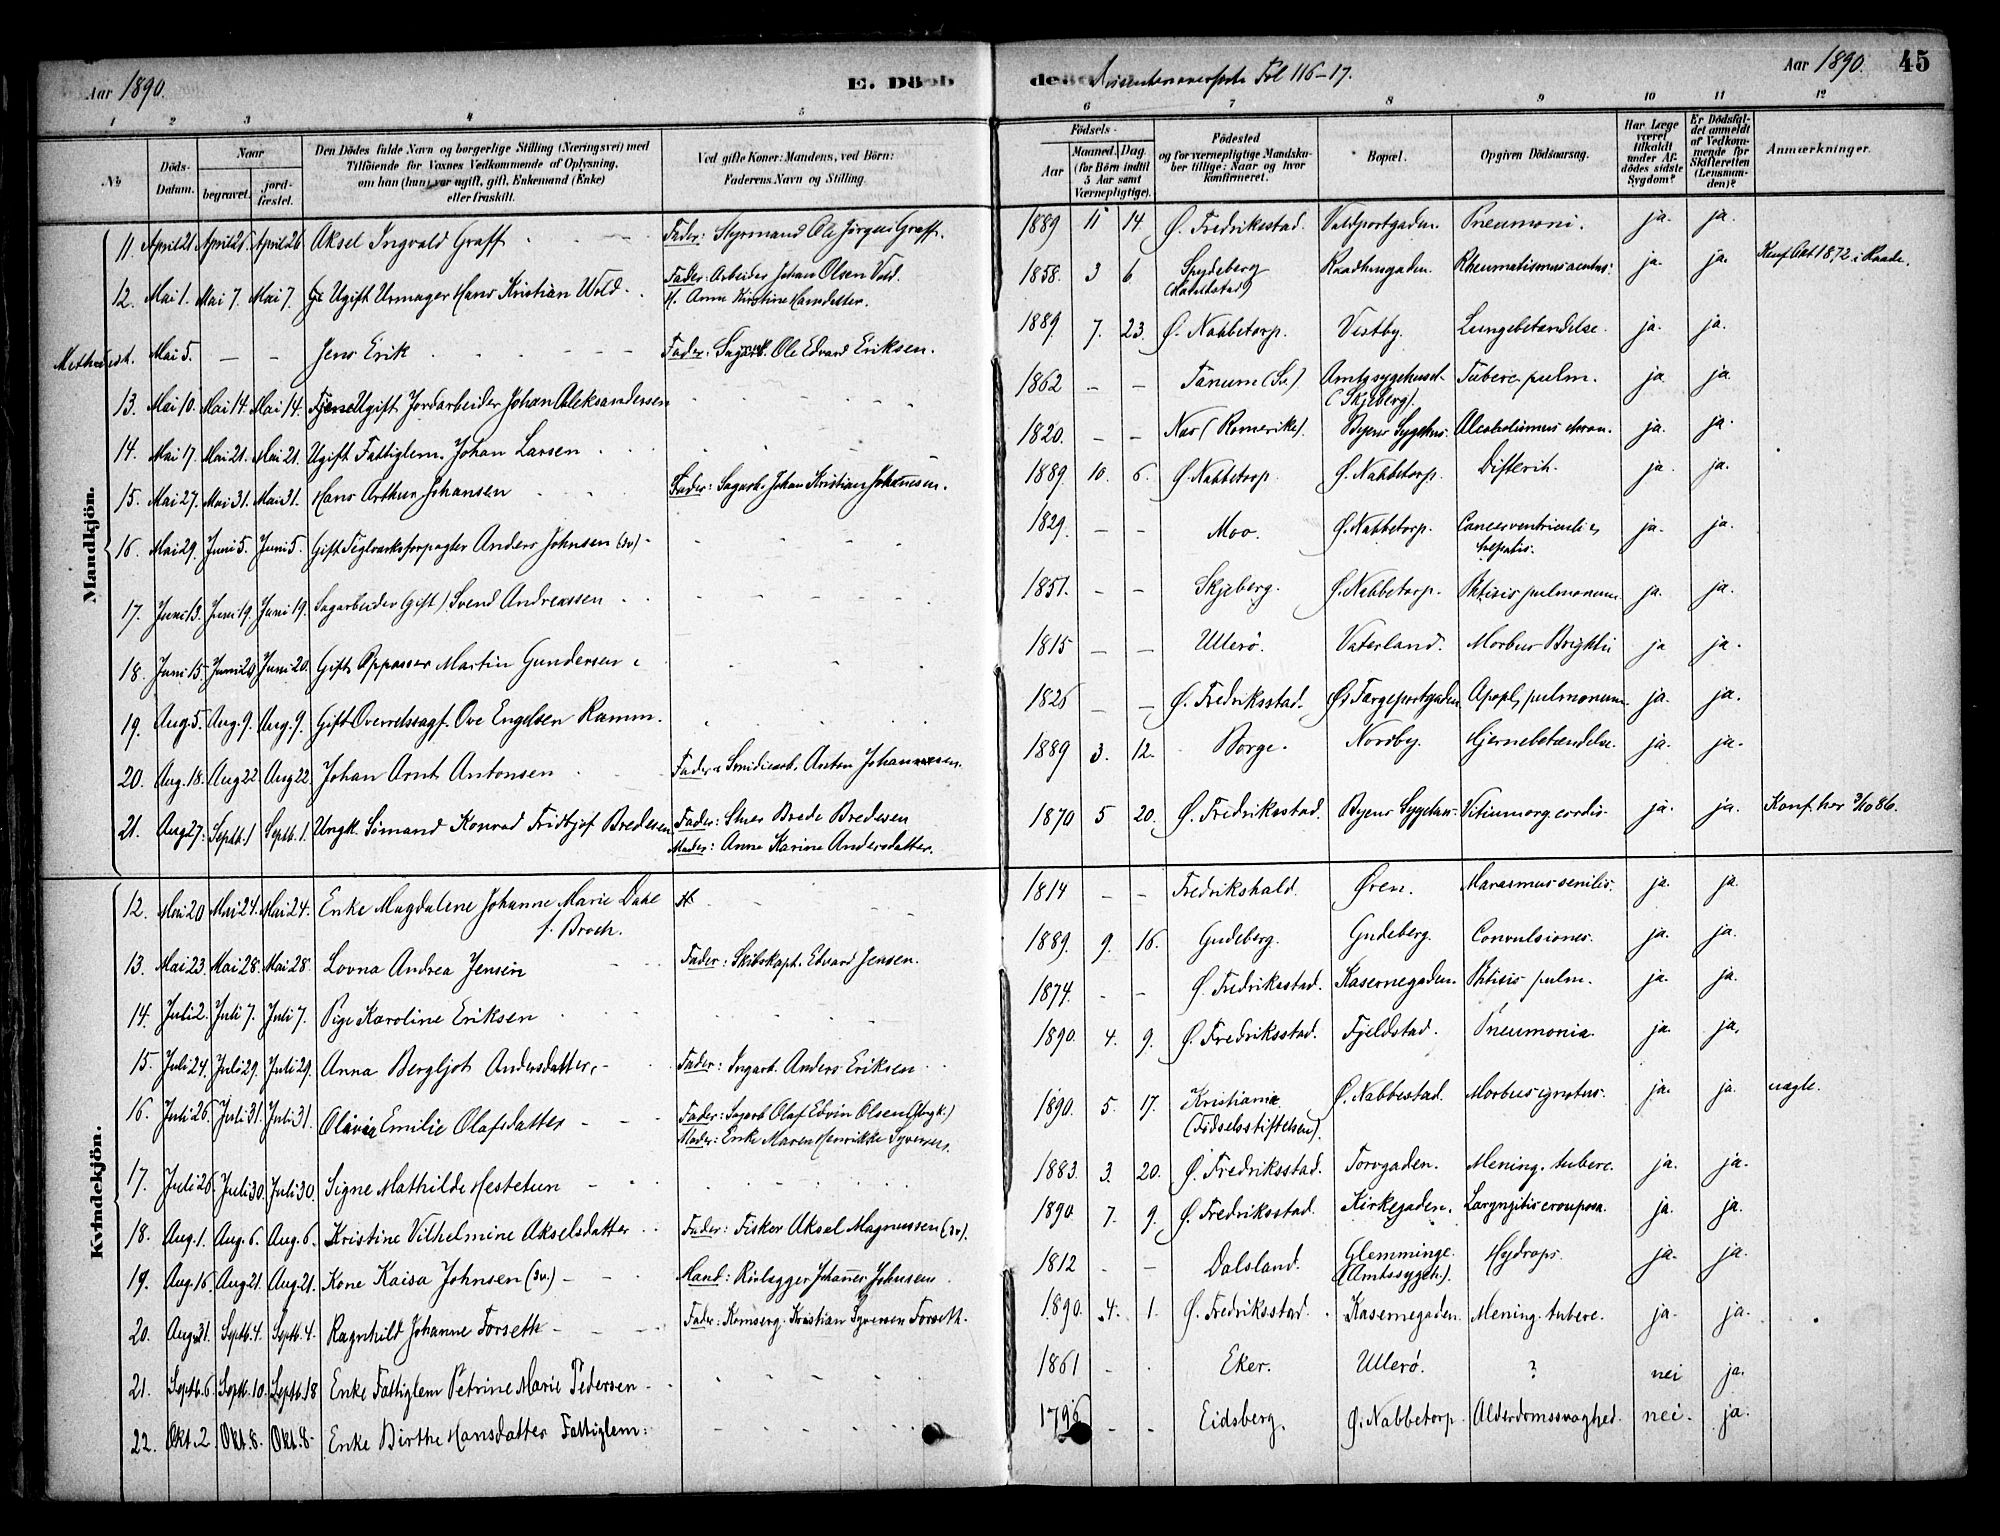 Aar 1890.
E. Döde
Fol 116-17.
Aar 1890.
45
1 2 3 4 5 6 7 8 9 10 11 12
No
Döds-Datum.
Naar
begravet.
jord-fæstet.
Den Dödes fulde Navn og borgerlige Stilling (Næringsvei) med
Tilföiende for Voxnes Vedkommende af Oplysning,
om han (hun) var ugift, gift, Enkemand (Enke)
eller fraskilt.
Ved gifte Koner: Mandens, ved Börn:
Faderens Navn og Stilling.
Födsels-
Aar
Maaned. Dag.
(for Börn indtil
5 Aar samt
Værnepligtige).
Födested
og for værnepligtige Mandska-
ber tillige: Naar og hvor
konfirmeret.
Bopæl.
Opgiven Dödsaarsag.
Har Læge
været
tilkaldt
under Af-
dödes sidste
Sygdom?
Er Dödsfal-
det anmeldt
af Vedkom-
mende for
Skifteretten
(Lensman-
den)?
Anmærkninger.
Mandkjön.
11. April 21. April 26. April 26 Aksel Ingvald Graff Fader: Styrmand Ole Jörgen Graff. 1889 11 14 Ö. Fredriksstad. Voldportgaden. Pneumoni. ja. ja.
12. Mai 1. Mai 7. Mai 7. Ugift Urmager Hans Kristian Wold. Fader: Arbeider Johan Olsen Vold. 1858. 3 6 Spydeberg Raadhusgaden. Rheumatismus acutus. ja. ja. Konf. Okt 1872 i Raade.
M. Anne Kirstine Hansdatter.
Mai 5. — — Jens Erik Fader: Sagarb. Ole Edvard Eriksen. 1889. 7. 23. Ö. Nabbetorp. Vestby. Lungebetændelse. ja. ja.
13. Mai 10. Mai 14. Mai 14. Ugift Jordarbeider Johan Aleksandersen 1862 — — Tanum (Sv.) Amtssygehuset (Skjeberg). Tuberc. pulm. ja ja.
14. Mai 17. Mai 21. Mai 21. Ugift Fattiglem. Johan Larsen 1820. — — Næs (Romerike). Byens Sygehus. Alcoholismus chron. ja. ja.
15. Mai 27. Mai 31. Mai 31. Hans Arthur Johansen Fader: Sagarb. Johan Kristian Johannesen. 1889 10. 6. Ö. Nabbetorp. Ö. Nabbetorp. Difterit. ja. ja.
16. Mai 29. Juni 5. Juni 5. Gift Teglværksforpagter Anders Johnsen (sv) 1829. — — Moo. Ö. Nabbetorp. Cancer ventriculi & hepatis. ja. ja.
17. Juni 13. Juni 19. Juni 19. Sagarbeider (gift) Svend Andreassen 1851. — — Skjeberg. Ö. Nabbetorp. Phtisis pulmonum ja. ja.
18. Juni 15. Juni 20 Juni 20. Gift Oppasser Martin Gundersen 1815 — — Ullerö. Vaterland. Morbus Brightii ja ja.
19. Aug. 5. Aug. 9. Aug. 9. Gift Overretssagf. Ove Engelsen Ramm. 1826 — — Ö. Fredriksstad. Færgeportgaden Apopl. pulmonum ja. ja.
20. Aug. 18. Aug 22 Aug 22. Johan Arnt Antonsen Fader: Smidiearb. Anton Johannesen. 1889 3. 12. Borge. Nordby. Hjernebetændelse. ja. ja.
21. Aug 27. Septb. 1 Septb. 1. Ungk. Sömand Konrad Fridtjof Bredesen Fader: Brede Bredesen 1870 5 20. Ö. Fredriksstad. Byens Sygehus. Vitium org. cordis ja. ja. Konf. her 3/10 86.
Moder: Anne Karine Andersdatter.
Kvindekjön.
12. Mai 20 Mai 24. Mai 24. Enke Magdalene Johanne Marie Dahl 1814 — — Fredrikshald. Ören. Marasmus senilis. ja. ja.
f. Broch.
13. Mai 23. Mai 28. Mai 28. Lovna Andrea Jensen Fader: Skibskapt. Edvard Jensen. 1889. 9. 16. Gudeberg. Gudeberg. Convulsiones. ja. ja.
14. Juli 2. Juli 7. Juli 7. Pige Karoline Eriksen 1874. — — Ö. Fredriksstad. Kasernegaden. Phtisis pulm. ja ja.
15. Juli 24. Juli 29. Juli 29. Anna Bergljot Andersdatter. Fader: Anders Eriksen 1890. 4. 9. Ö. Fredriksstad. Fjeldstad. Pneumonia. ja. ja.
16. Juli 26. Juli 31. Juli 31. Olivia Emilie Olafsdatter Fader: Sagarb Olaf Edvin Olsen (Ungk.) 1890. 5. 17. Kristiania (Födselsstiftelsen). Ö. Nabbestad. Morbus ignotus. ja. ja. uægte.
Moder: Enke Maren Henrikke Syversen.
17. Juli 26. Juli 30. Juli 30. Signe Mathilde Hestetun 1883. 3. 20. Ö. Fredriksstad. Torvgaden. Mening. tuberc. ja. ja.
18. Aug. 1. Aug. 6. Aug. 6. Kristine Vilhelmine Akselsdatter Fader: Fisker Aksel Magnussen (sv). 1890. 7. 9. Ö. Fredriksstad. Kirkegaden. Laryngitis crouposa. ja. ja.
19. Aug. 16. Aug 21. Aug. 21. Kone Kaisa Johnsen (sv.) Mand: Johannes Johnsen 1812 — — Dalsland. Glemminge (Amtssygeh.). Hydrops. ja. ja.
20. Aug 31. Septb. 4. Septb. 4. Ragnhild Johanne Forseth Fader: Kristian Syversen Forseth. 1890. 4. 1. Ö. Fredriksstad. Kasernegaden. Mening. tuberc. ja. ja.
21. Septb. 6. Septb. 10. Septb. 18 Enke Fattiglem Petrine Marie Pedersen 1861 - - Eker. Ullerö. ? nei ja.
22. Okt. 2 Okt. 8. Okt. 8. Enke Birthe Hansdatter Fattiglem. 1796 - - Eidsberg. Ö. Nabbetorp. Alderdomssvaghed. nei. ja.